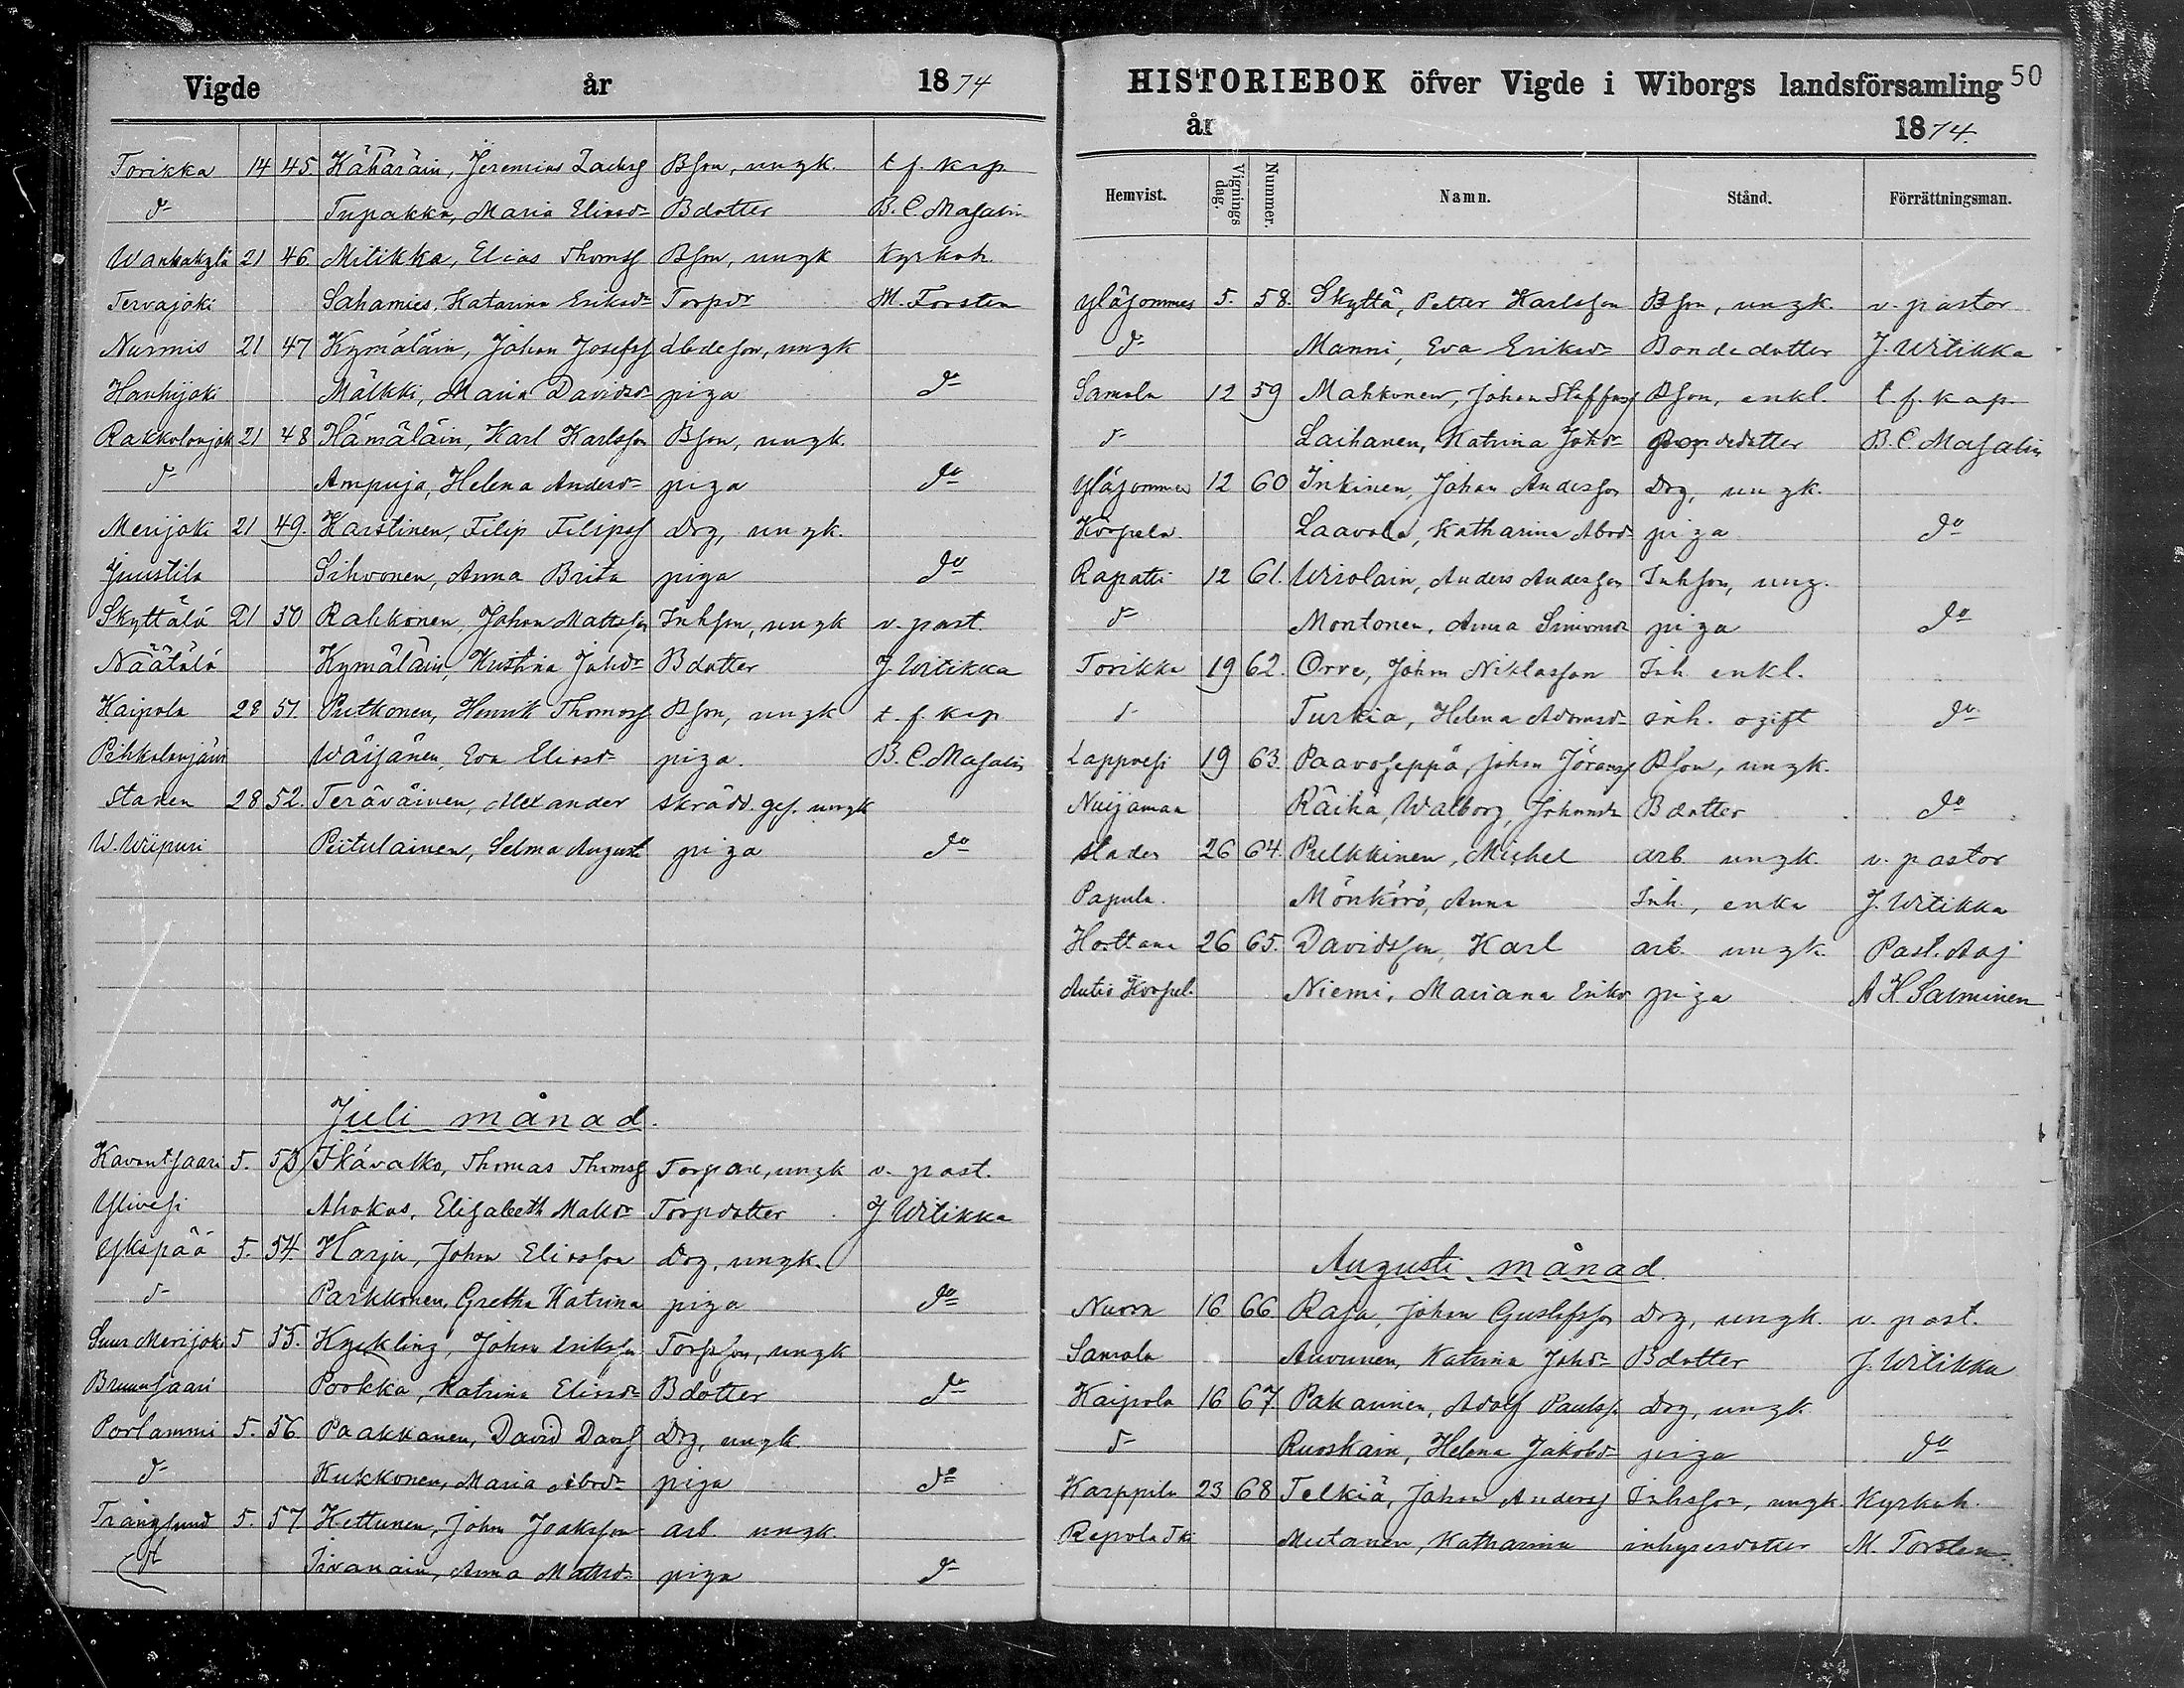 Vigde år 1874
Torikka 14 45. Kähäräin, Jeremias Zachrs Bson, ungk. t f. kap
do Tupakka, Maria Eliasdr Bdotter B. C. Masalin
Wanhakylä 21 46. Mitikka, Elias Thomss Bson, ungk Kyrkoh.
Tervajoki Sahamies, Katarina Eriksdr Torpdr M. Forsten
Nurmis 21 47 Kymäläin, Johan Josefss ungk
Hanhijoki Mälkki, Maria Davidsdr piga do
Rakkolanjok 21 48 Hämäläin, Karl Karlsson Bson, ungk.
do Ampuja, Helena Andersdr piga do
Merijoki 21 49. Karstinen, Filip Filipss Drg, ungk.
Juustila Sihvonen, Anna Brita piga do
Skyttälä 21 50 Rahkonen, Johan Mattsson Inhson, ungk v. past.
Näätälä Kymäläin, Kristina Johdr Bdotter J. Witikka
Kaipola 28 51. Putkonen, Henrik Thomass Bson, ungk t. f. kap
Pihkalanjärvi Wäisänen, Eva Eliasdr piga. B. C. Masalin
Staden 28 52. Teräväinen, Alexander skrädd. ges. ungk
W. Wiipuri Peitulainen, Selma Augusta piga do
Juli månad.
Kavantsaari 5. 53 Ikävalko, Thomas Thomss Torpare, ungk v. past.
Ylivesi Ahokas, Elisabeth Matsdr Torpdotter J Witikka
Ykspää 5. 54 Harju, Johan Eliasson Drg, ungk.
do Parkkonen, Gretha Katrina piga do
Suur Merijoki 5 55. Kyckling, Johan Eriksson Torpson, ungk
Bruunsaari Pookka, Katrina Eliasdr Bdotter do
Porlammi 5. 56 Paakkanen, David Davss Drg, ungk.
do Kukkonen, Maria Abrdr piga do
Trångsund 5. 57 Kettunen, Johan Joaksson arb. ungk.
do Tivanain, Anna Mattsdr piga do
HISTORIEBOK öfver Vigde i Wiborgs landsförsamling 50
år 1874.
Hemvist. Vignings dag. Nummer. Namn. Stånd. Förrättningsman.
Yläsommes 5. 58. Skyttä, Petter Karlsson Bson, ungk. v. pastor
do Manni, Eva Eriksdr Bondedotter J. Witikka
Samola 12 59 Mahkonen, Johan Staffans Bson, enkl. t. f. kap.
do Laihanen, Katrina Johdr B. C. Masalin
Yläsommes 12 60 Inkinen, Johan Andersson Drg, ungk.
Korpela Laavola, Katharina Abrdr piga do
Rapatti 12 61. Wirolain, Anders Andersson Inhson, ung.
do Montonen, Anna Simonsdr piga do
Torikka 19 62. Orve, Johan Niklasson Inh. enkl.
do Turkia, Helena Adamsdr inh. ogift do
Lappvesi 19 63. Paavoseppä, Johan Jöranss Bson, ungk.
Nuijamaa Räihä, Walborg, Johansdr Bdotter do
staden 26 64. Pulkkinen, Michel arb. ungk. v. pastor
Papula. Mönkörö, Anna Inh., enka J. Witikka
Horttana 26 65. Davidsson, Karl arb. ungk. Past. Adj
Autio Korpel. Niemi, Mariana Eriksdr piga A H. Salminen
Augusti månad.
Nuora 16 66 Rasa, Johan Gustafsson Drg, ungk. v. past.
Samola Auvunen, Katrina Johdr Bdotter J. Witikka
Kaipola 16 67 Pakarinen, Adolf Paulss. Drg, ungk.
do Ruoskain, Helena Jakobsdr piga do
Karppila 23 68 Telkiä, Johan Anderss Inhsson, ungk. Kyrkoh.
Repola Tki Mutanen, Katharina inhysesdotter M. Forsten.